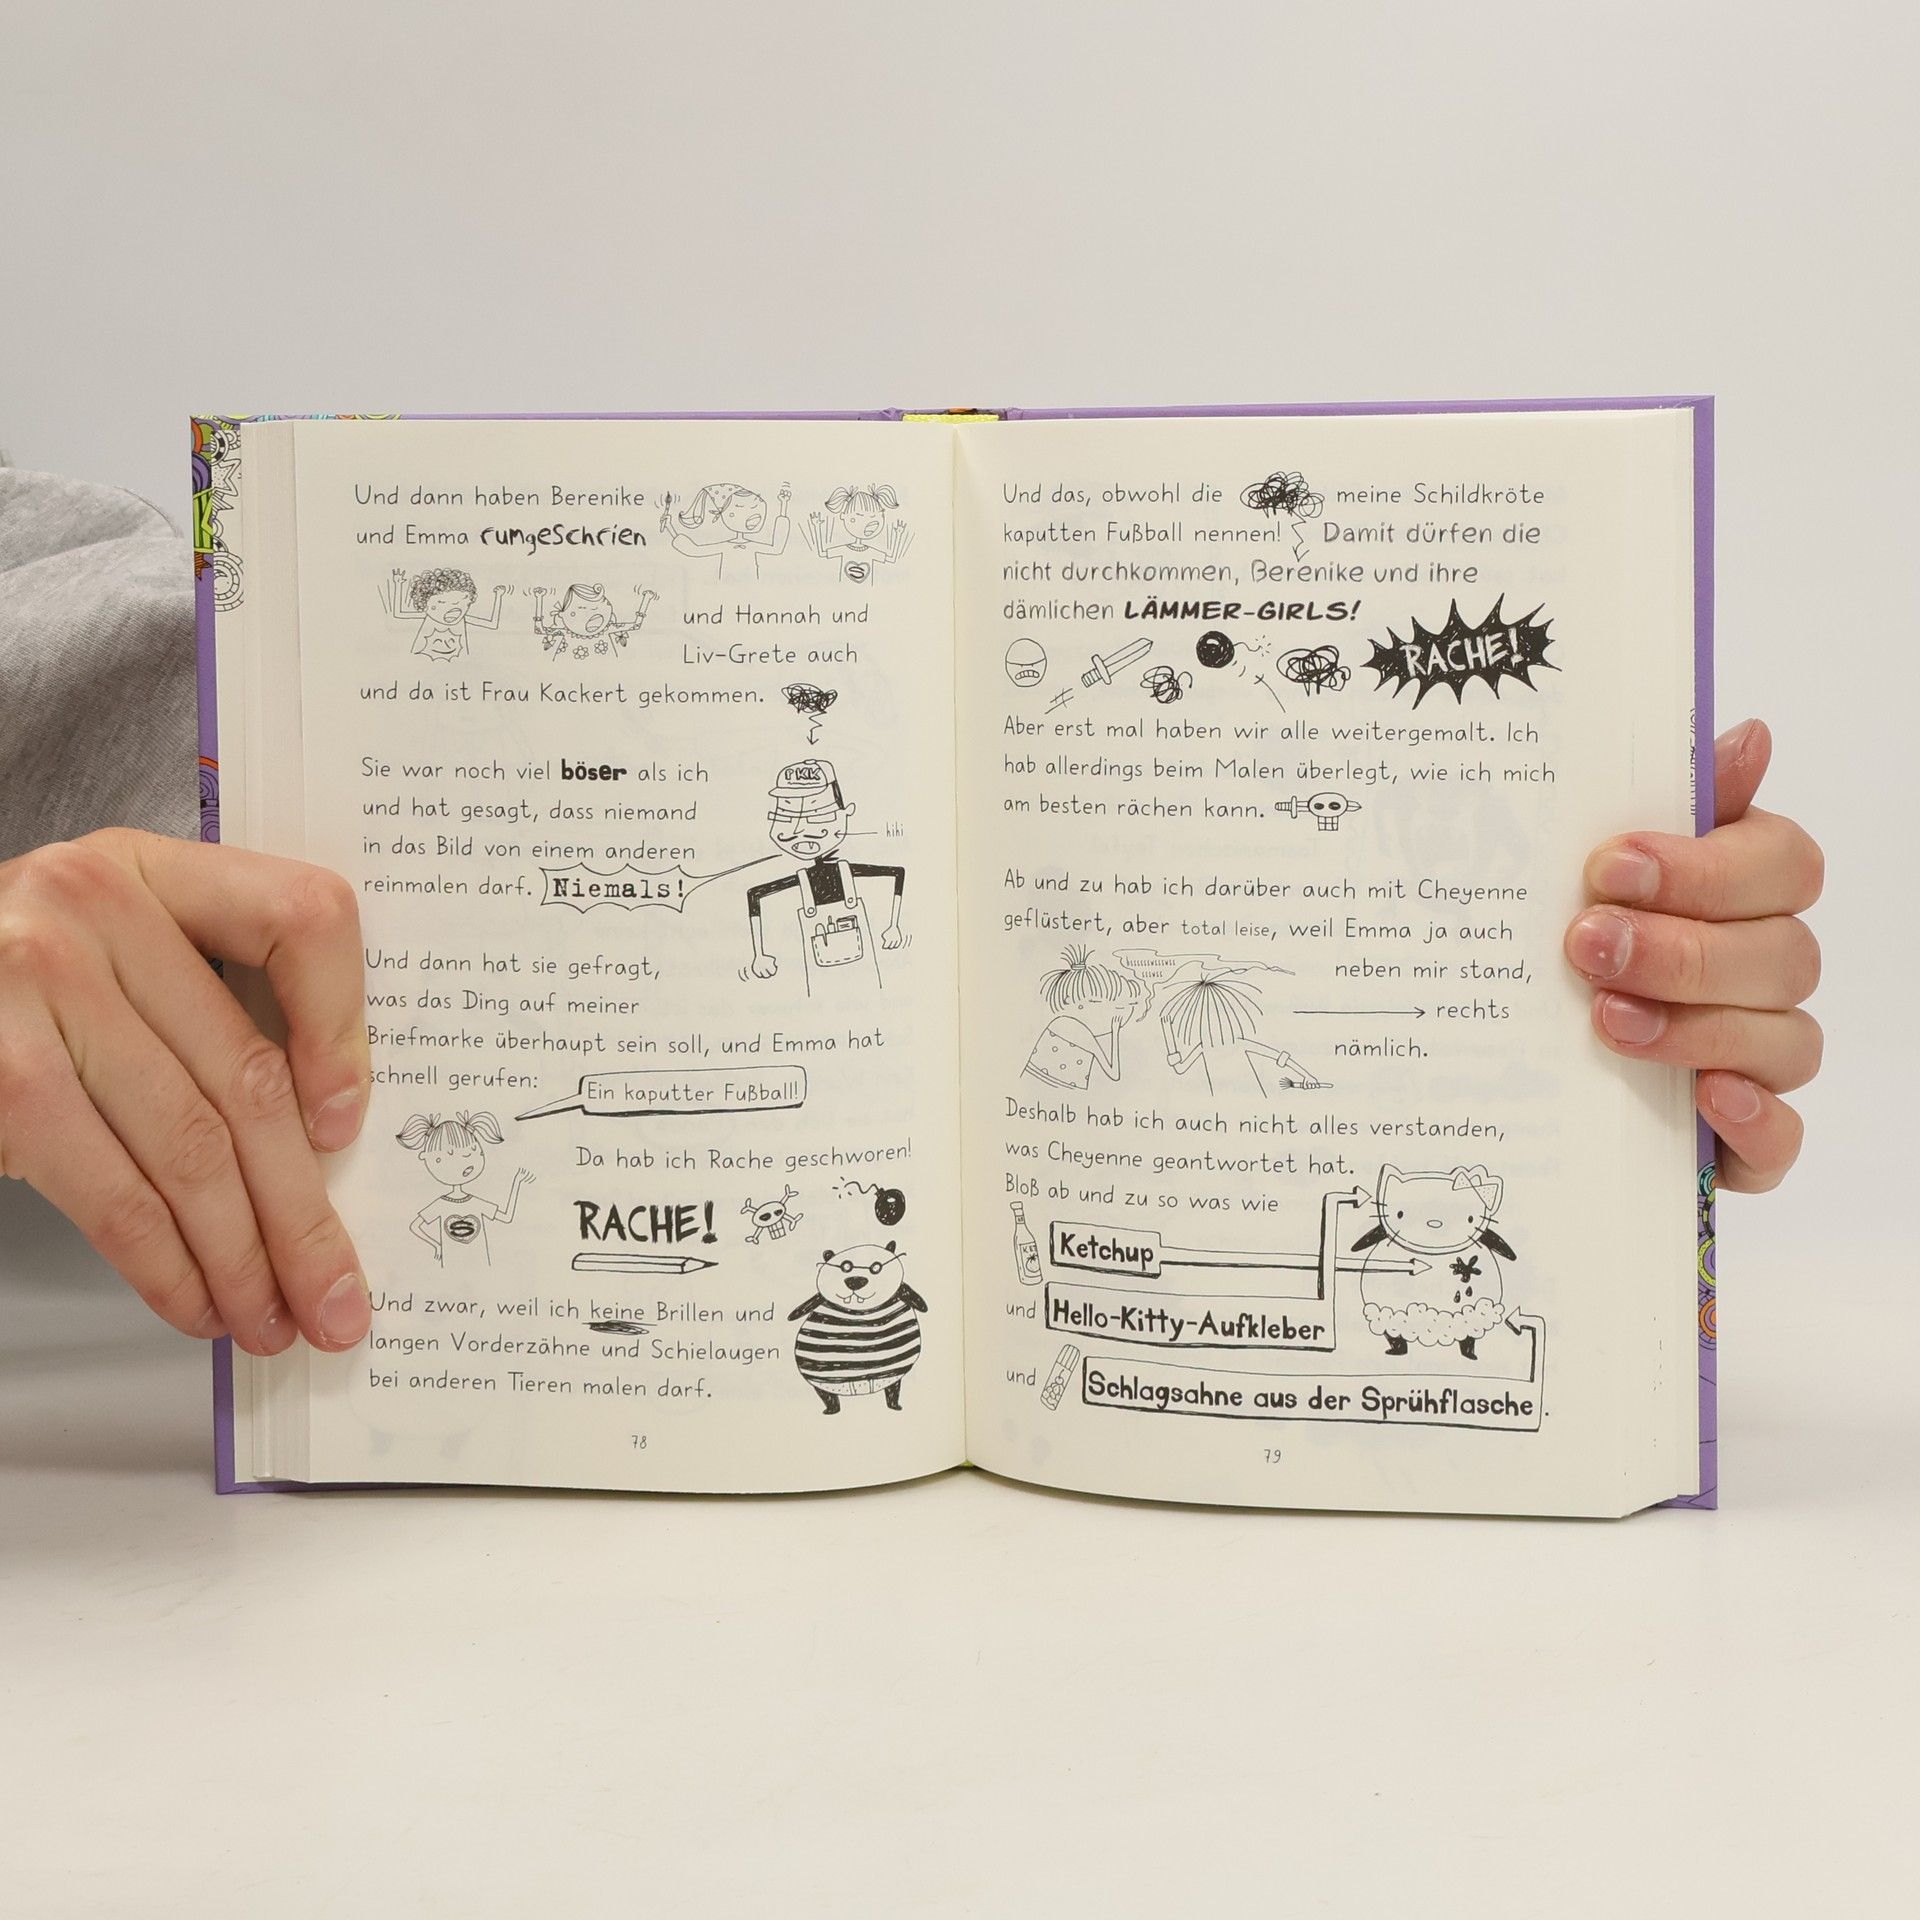 Und dann haben Berenike
und Emma rumgeschrien
und Hannah und
Liv-Grete auch
und da ist Frau Kackert gekommen.
Sie war noch viel böser als ich
und hat gesagt, dass niemand
in das Bild von einem anderen
reinmalen darf. Niemals!
PKK
hihi
Und dann hat sie gefragt,
was das Ding auf meiner
Briefmarke überhaupt sein soll, und Emma hat
schnell gerufen:
Ein kaputter Fußball!
Da hab ich Rache geschworen!
RACHE!
S
Und zwar, weil ich keine Brillen und
langen Vorderzähne und Schielaugen
bei anderen Tieren malen darf.
78
Und das, obwohl die meine Schildkröte
kaputten Fußball nennen! Damit dürfen die
nicht durchkommen, Berenike und ihre
dämlichen LÄMMER-GIRLS!
RACHE!
Aber erst mal haben wir alle weitergemalt. Ich
hab allerdings beim Malen überlegt, wie ich mich
am besten rächen kann.
Ab und zu hab ich darüber auch mit Cheyenne
geflüstert, aber total leise, weil Emma ja auch
neben mir stand,
rechts
nämlich.
Deshalb hab ich auch nicht alles verstanden,
was Cheyenne geantwortet hat.
Bloß ab und zu so was wie
Ketchup
und Hello-Kitty-Aufkleber
und Schlagsahne aus der Sprühflasche.
79